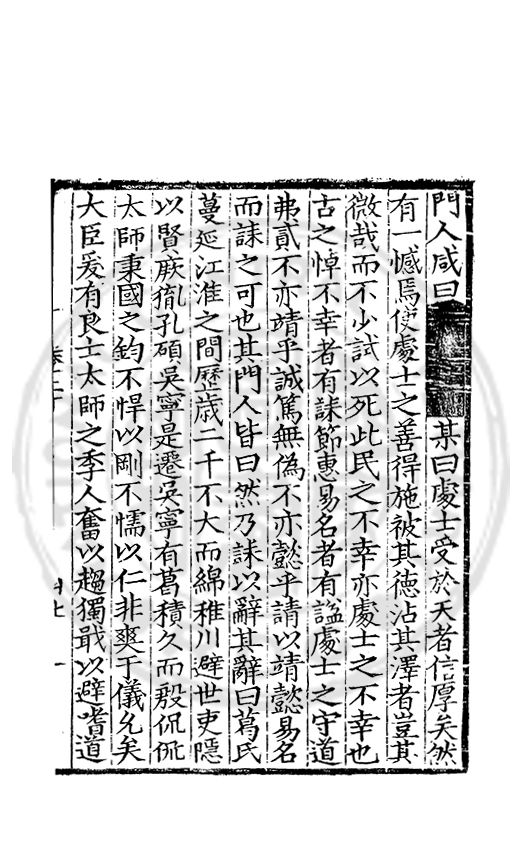 門人咸曰某曰處士受於天者信厚矣然
有一憾焉使處士之善得施被其德沾其澤者豈其
微哉而不少試以死此民之不幸亦處士之不幸也
古之悼不幸者有誄節惠易名者有諡處士之守道
弗貳不亦靖乎誠篤無偽不亦懿乎請以靖懿易名
而誄之可也其門人皆曰然乃誄以辭其辭曰葛氏
蔓延江淮之間歷歲二千不大而綿稚川避世吏隱
以賢厥胤孔碩吳寧是遷吳寧有葛積久而殷侃侃
太師秉國之鈞不悍以剛不懦以仁非爽于儀允矣
大臣爰有良士太師之季人奮以趨獨戢以避嗜道
卷二十